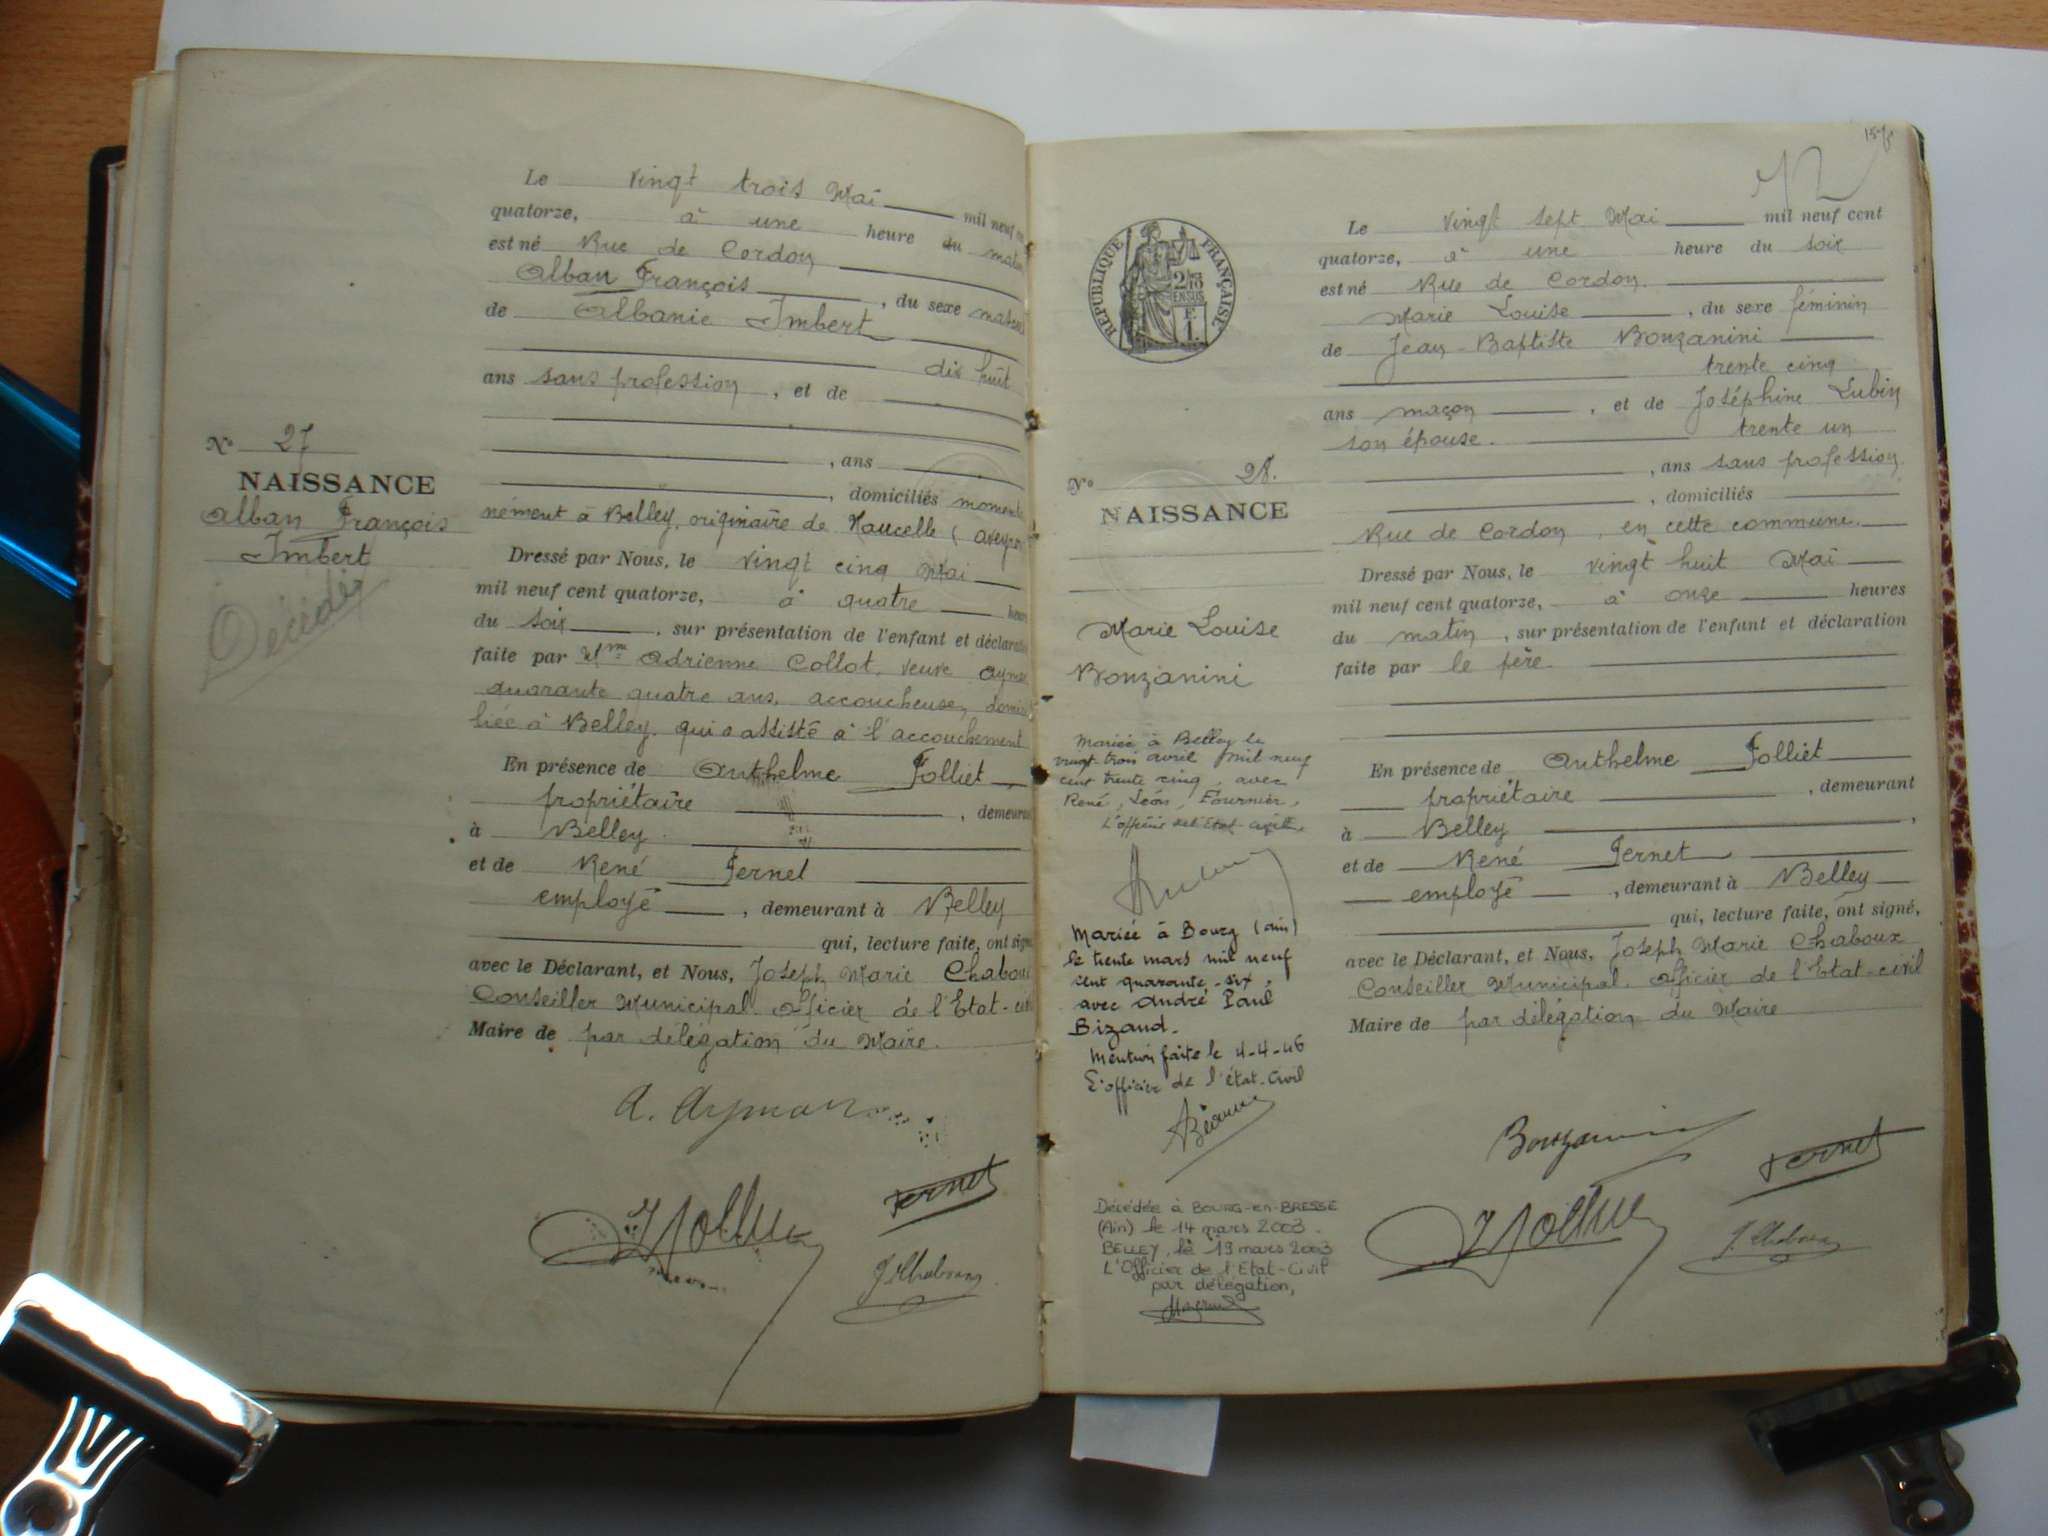 Le vingt trois Mai mil neuf
quatorze, à une heure du matin
est né Rue de Cordon
Alban François, du sexe
de Albanie Imbert
dix huit
ans sans profession, et de
, ans
, domiciliés momenta
nément à Belley, originaire de Naucelle (Aveyron
Dressé par Nous, le vingt cinq Mai
mil neuf cent quatorze, à quatre heures
du soir, sur présentation de l'enfant et déclaration
faite par Mme Adrienne Collot, veuve
quarante quatre ans, accoucheuse, domici
liée à Belley, qui a assisté à l'accouchement
En présence de Anthelme Folliet
propriétaire, demeurant
à Belley.
et de René Fernet
employé, demeurant à Belley
qui, lecture faite, ont signé
avec le Déclarant, et Nous, Joseph Marie Chaboux
Conseiller Municipal Officier de l'Etat-civil
Maire de par délégation du Maire.
N° 27
NAISSANCE
Alban François
Imbert
Décédé
A. Aymar
Fernet
J. Chaboux
157
RÉPUBLIQUE FRANÇAISE
2/10
EN SUS
1 F.
Le vingt sept Mai mil neuf cent
quatorze, à une heure du soir
est né Rue de Cordon.
Marie Louise, du sexe féminin
de Jean-Baptiste Bonzanini
trente cinq
ans maçon, et de Joséphine Lubin
son épouse. trente un
, ans sans profession,
, domiciliés
Rue de Cordon, en cette commune.
Dressé par Nous, le vingt huit Mai
mil neuf cent quatorze, à onze heures
du matin, sur présentation de l'enfant et déclaration
faite par le père.
En présence de Anthelme Folliet
propriétaire, demeurant
à Belley,
et de René Fernet
employé, demeurant à Belley
qui, lecture faite, ont signé,
avec le Déclarant, et Nous, Joseph Marie Chaboux
Conseiller Municipal. Officier de l'Etat-civil
Maire de par délégation du Maire
N° 28.
NAISSANCE
Marie Louise
Bonzanini
Mariée à Belley le
vingt-trois avril mil neuf
cent trente cinq, avec
René, Léon, Fournier,
L'officier de l'Etat-civil,
Mariée à Bourg (ain)
le trente mars mil neuf
cent quarante-six,
avec André Paul
Bizaud.
Mention faite le 4-4-46
L'officier de l'état-civil
Décédée à BOURG-en-BRESSE
(Ain) le 14 mars 2003.
BELLEY, le 19 mars 2003
L'Officier de l'Etat-Civil
par délégation,
Bonzanini
Fernet
J. Chaboux